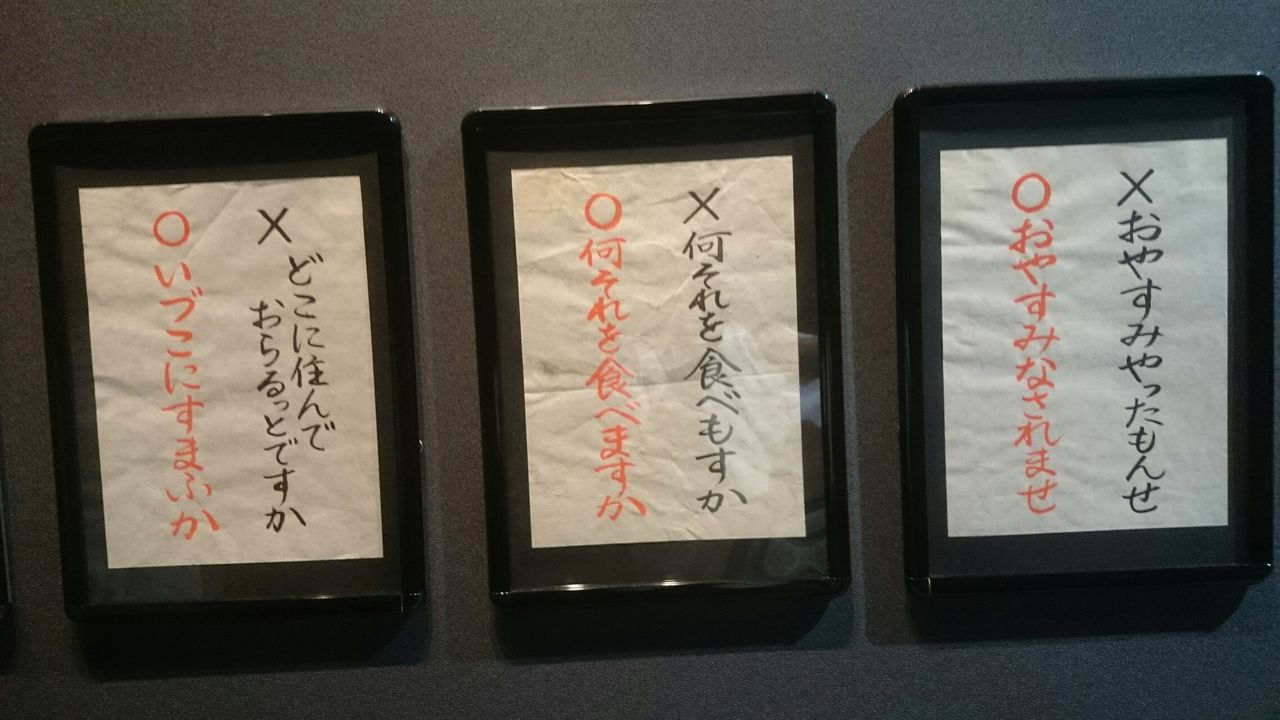 ×おやすみやったもんせ
○おやすみなされませ
×何それを食べもすか
○何それを食べますか
×どこに住んで
おらるっとですか
○いづこにすまふか